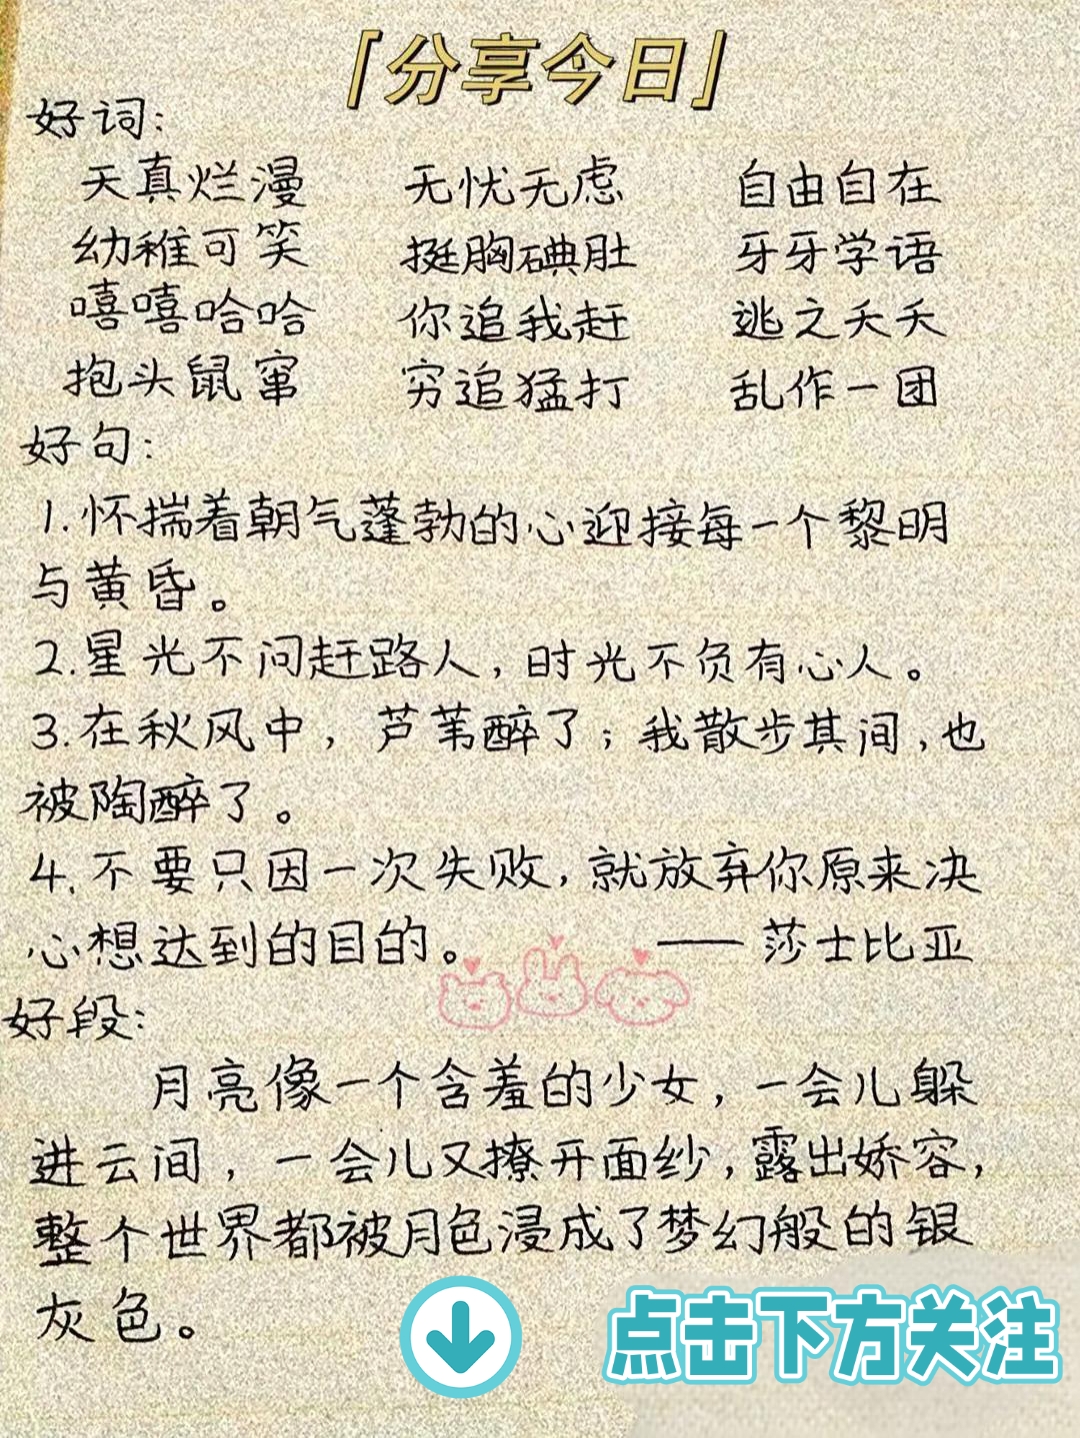 「分享今日」
好词:
天真烂漫 无忧无虑 自由自在
幼稚可笑 挺胸碘肚 牙牙学语
嘻嘻哈哈 你追我赶 逃之夭夭
抱头鼠窜 穷追猛打 乱作一团
好句:
1.怀揣着朝气蓬勃的心迎接每一个黎明
与黄昏。
2.星光不问赶路人,时光不负有心人。
3.在秋风中,芦苇醉了;我散步其间,也
被陶醉了。
4.不要只因一次失败,就放弃你原来决
心想达到的目的。 ——莎士比亚
好段:
月亮像一个含羞的少女,一会儿躲
进云间,一会儿又撩开面纱,露出娇容,
整个世界都被月色浸成了梦幻般的银
灰色。
点击下方关注